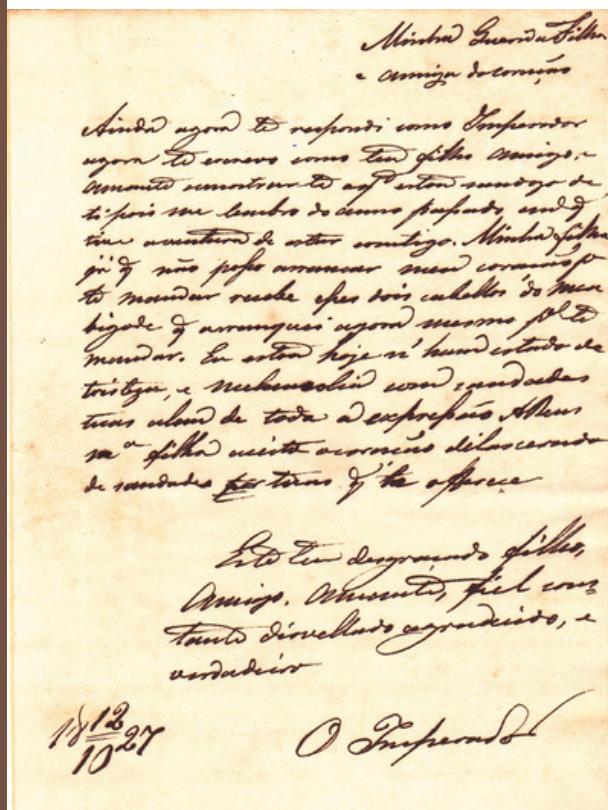 Minha Querida Filha
e amiga do coração
Ainda agora te respondi como Imperador
agora te escrevo como teu filho amigo, e
amante a mostrar te aq.ᵗᵒ estou saudozo de
ti pois me lembro do anno passado, em q̃
tive a ventura de estar comtigo. Minha filha
já q̃ não posso arrancar meu coração p.ᵃ
te mandar recebe esses dois cabellos do meu
bigode q̃ arranquei agora mesmo p.ᵃ te
mandar. Eu estou hoje n'hum estado de
tristeza, e melancolia com saudades
tuas alem de toda a expressão ADeus
m.ᵃ filha aceite o coração dilascerado
de saudades tuas q̃ lhe offerece
Este teu desgraçado filho,
Amigo. Amante, fiel cons
tante disvellado agradecido, e
verdadeiro
O Imperador
18 12/10 27